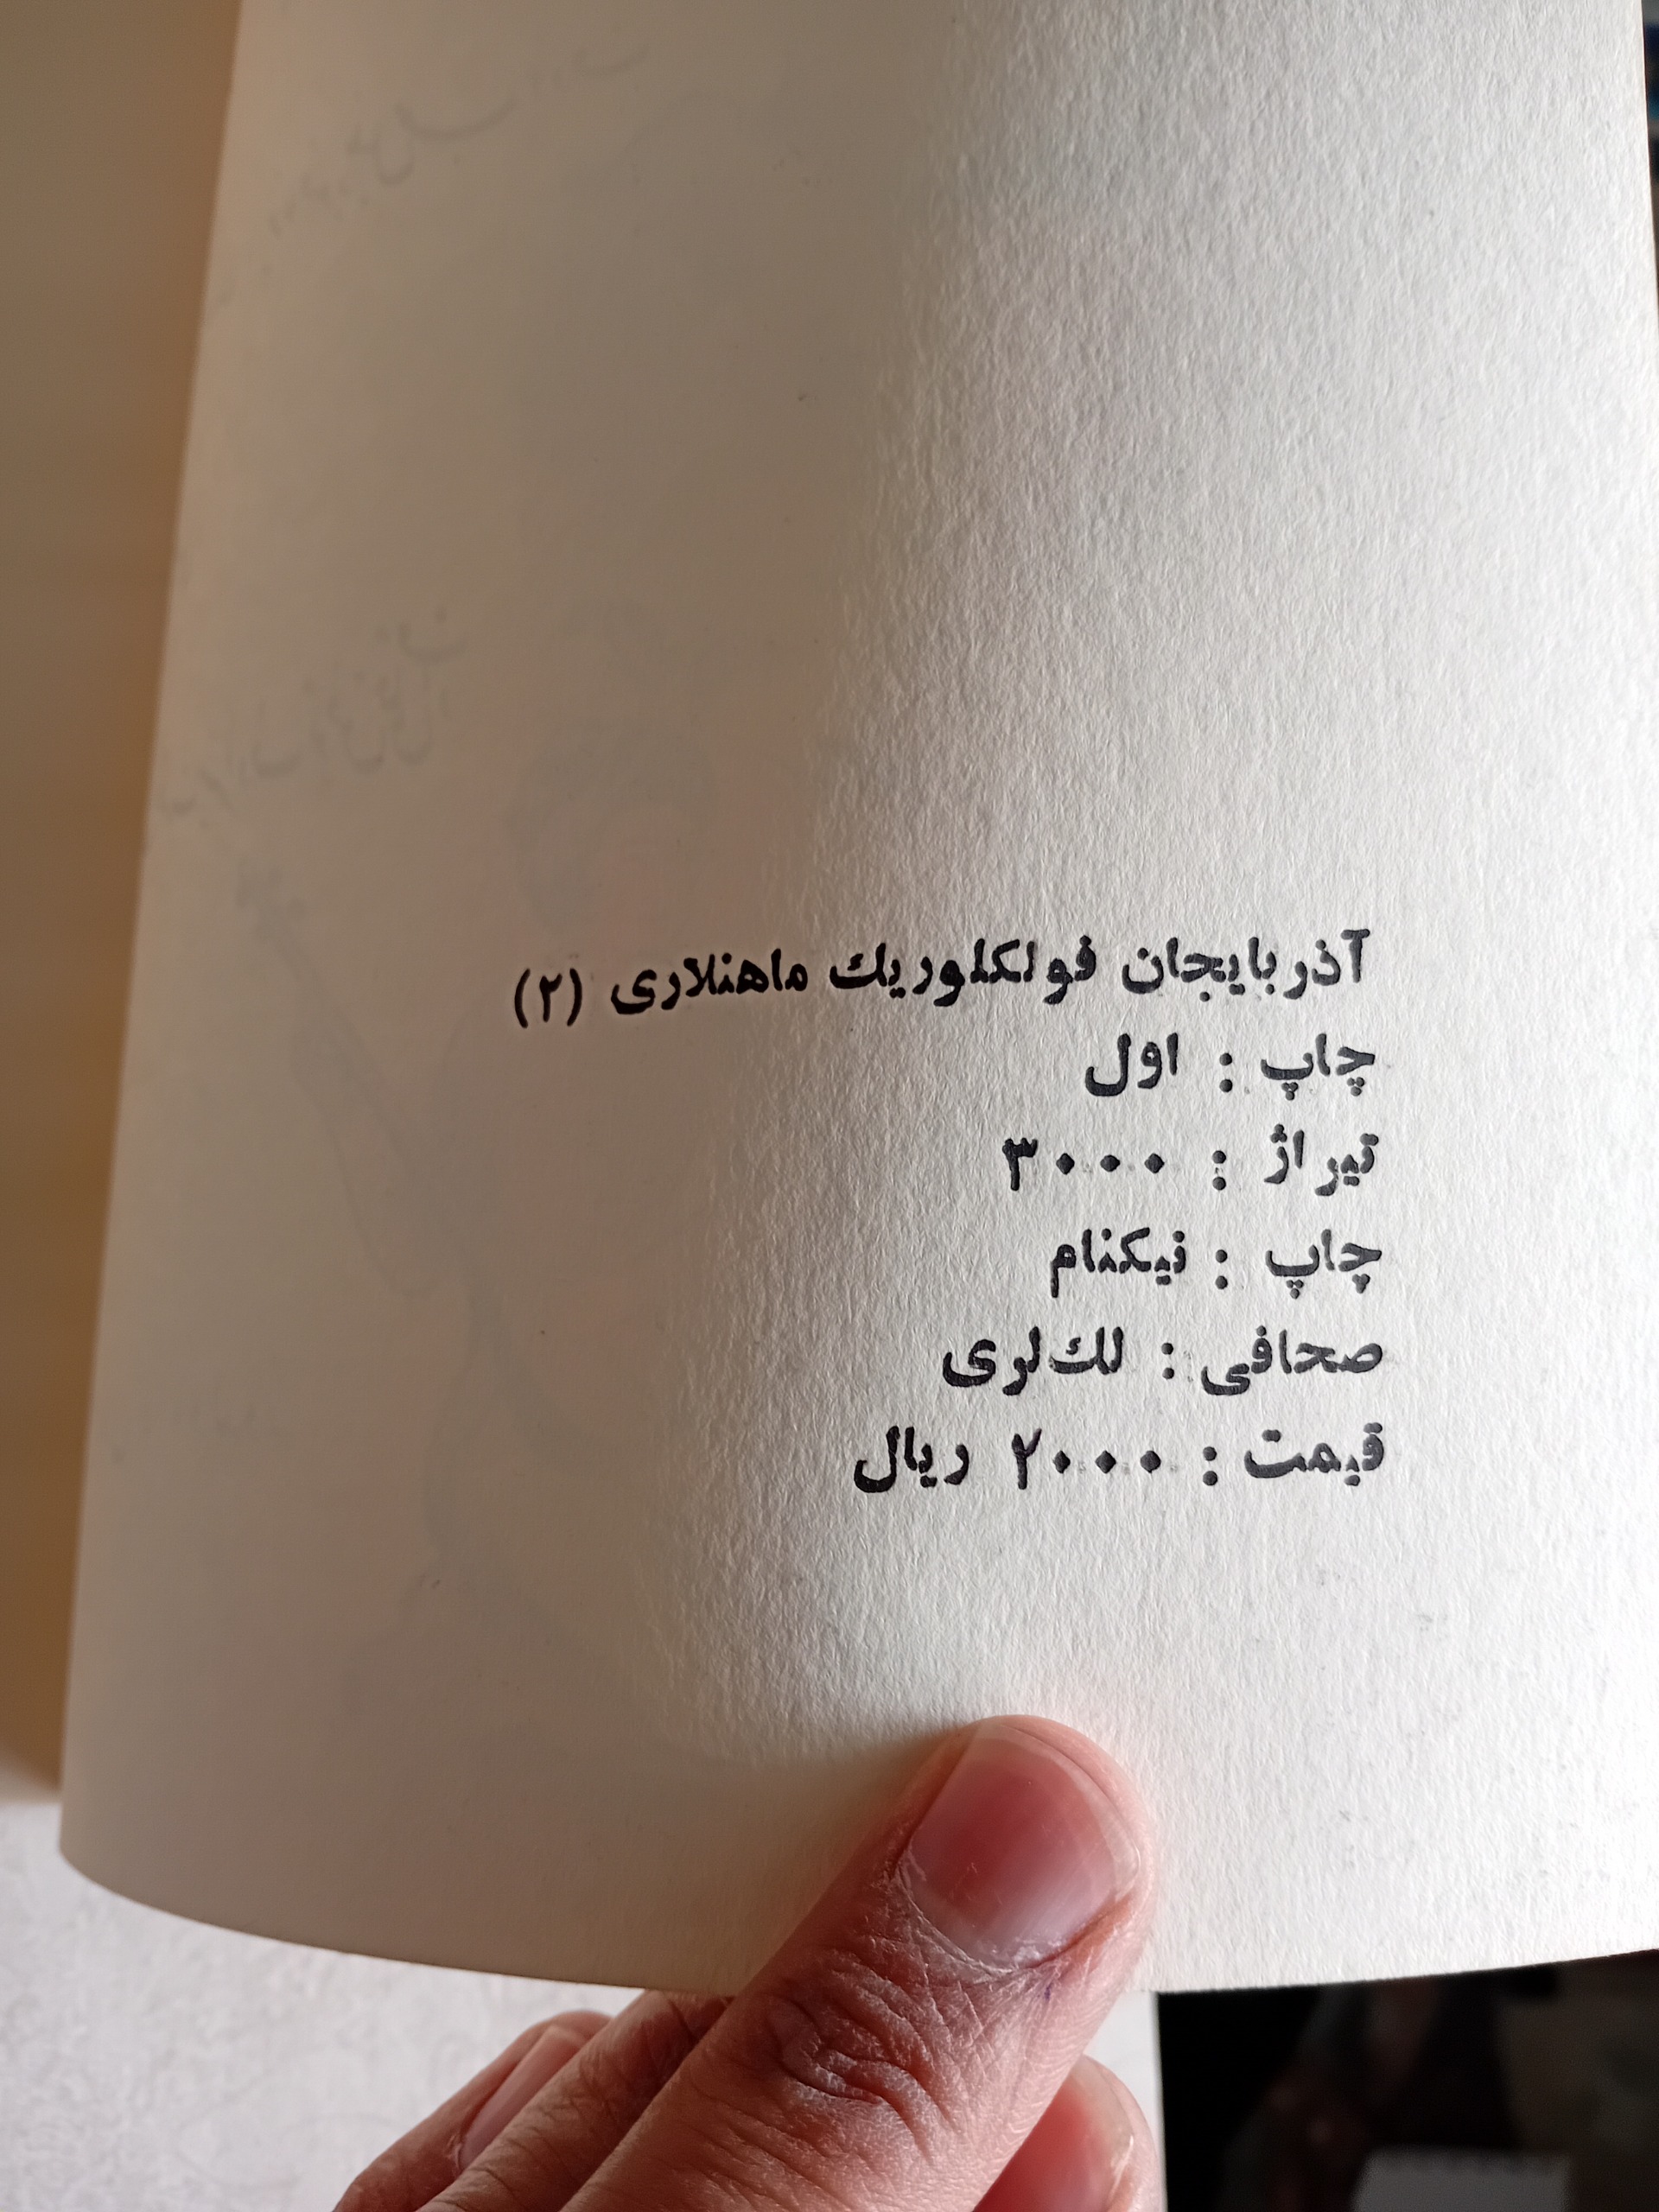 آذربایجان فولکلوریك ماهنلاری (۲)
چاپ : اول
تیراژ : ۳۰۰۰
چاپ : نیکنام
صحافی : لك‌لری
قیمت : ۲۰۰۰ ریال